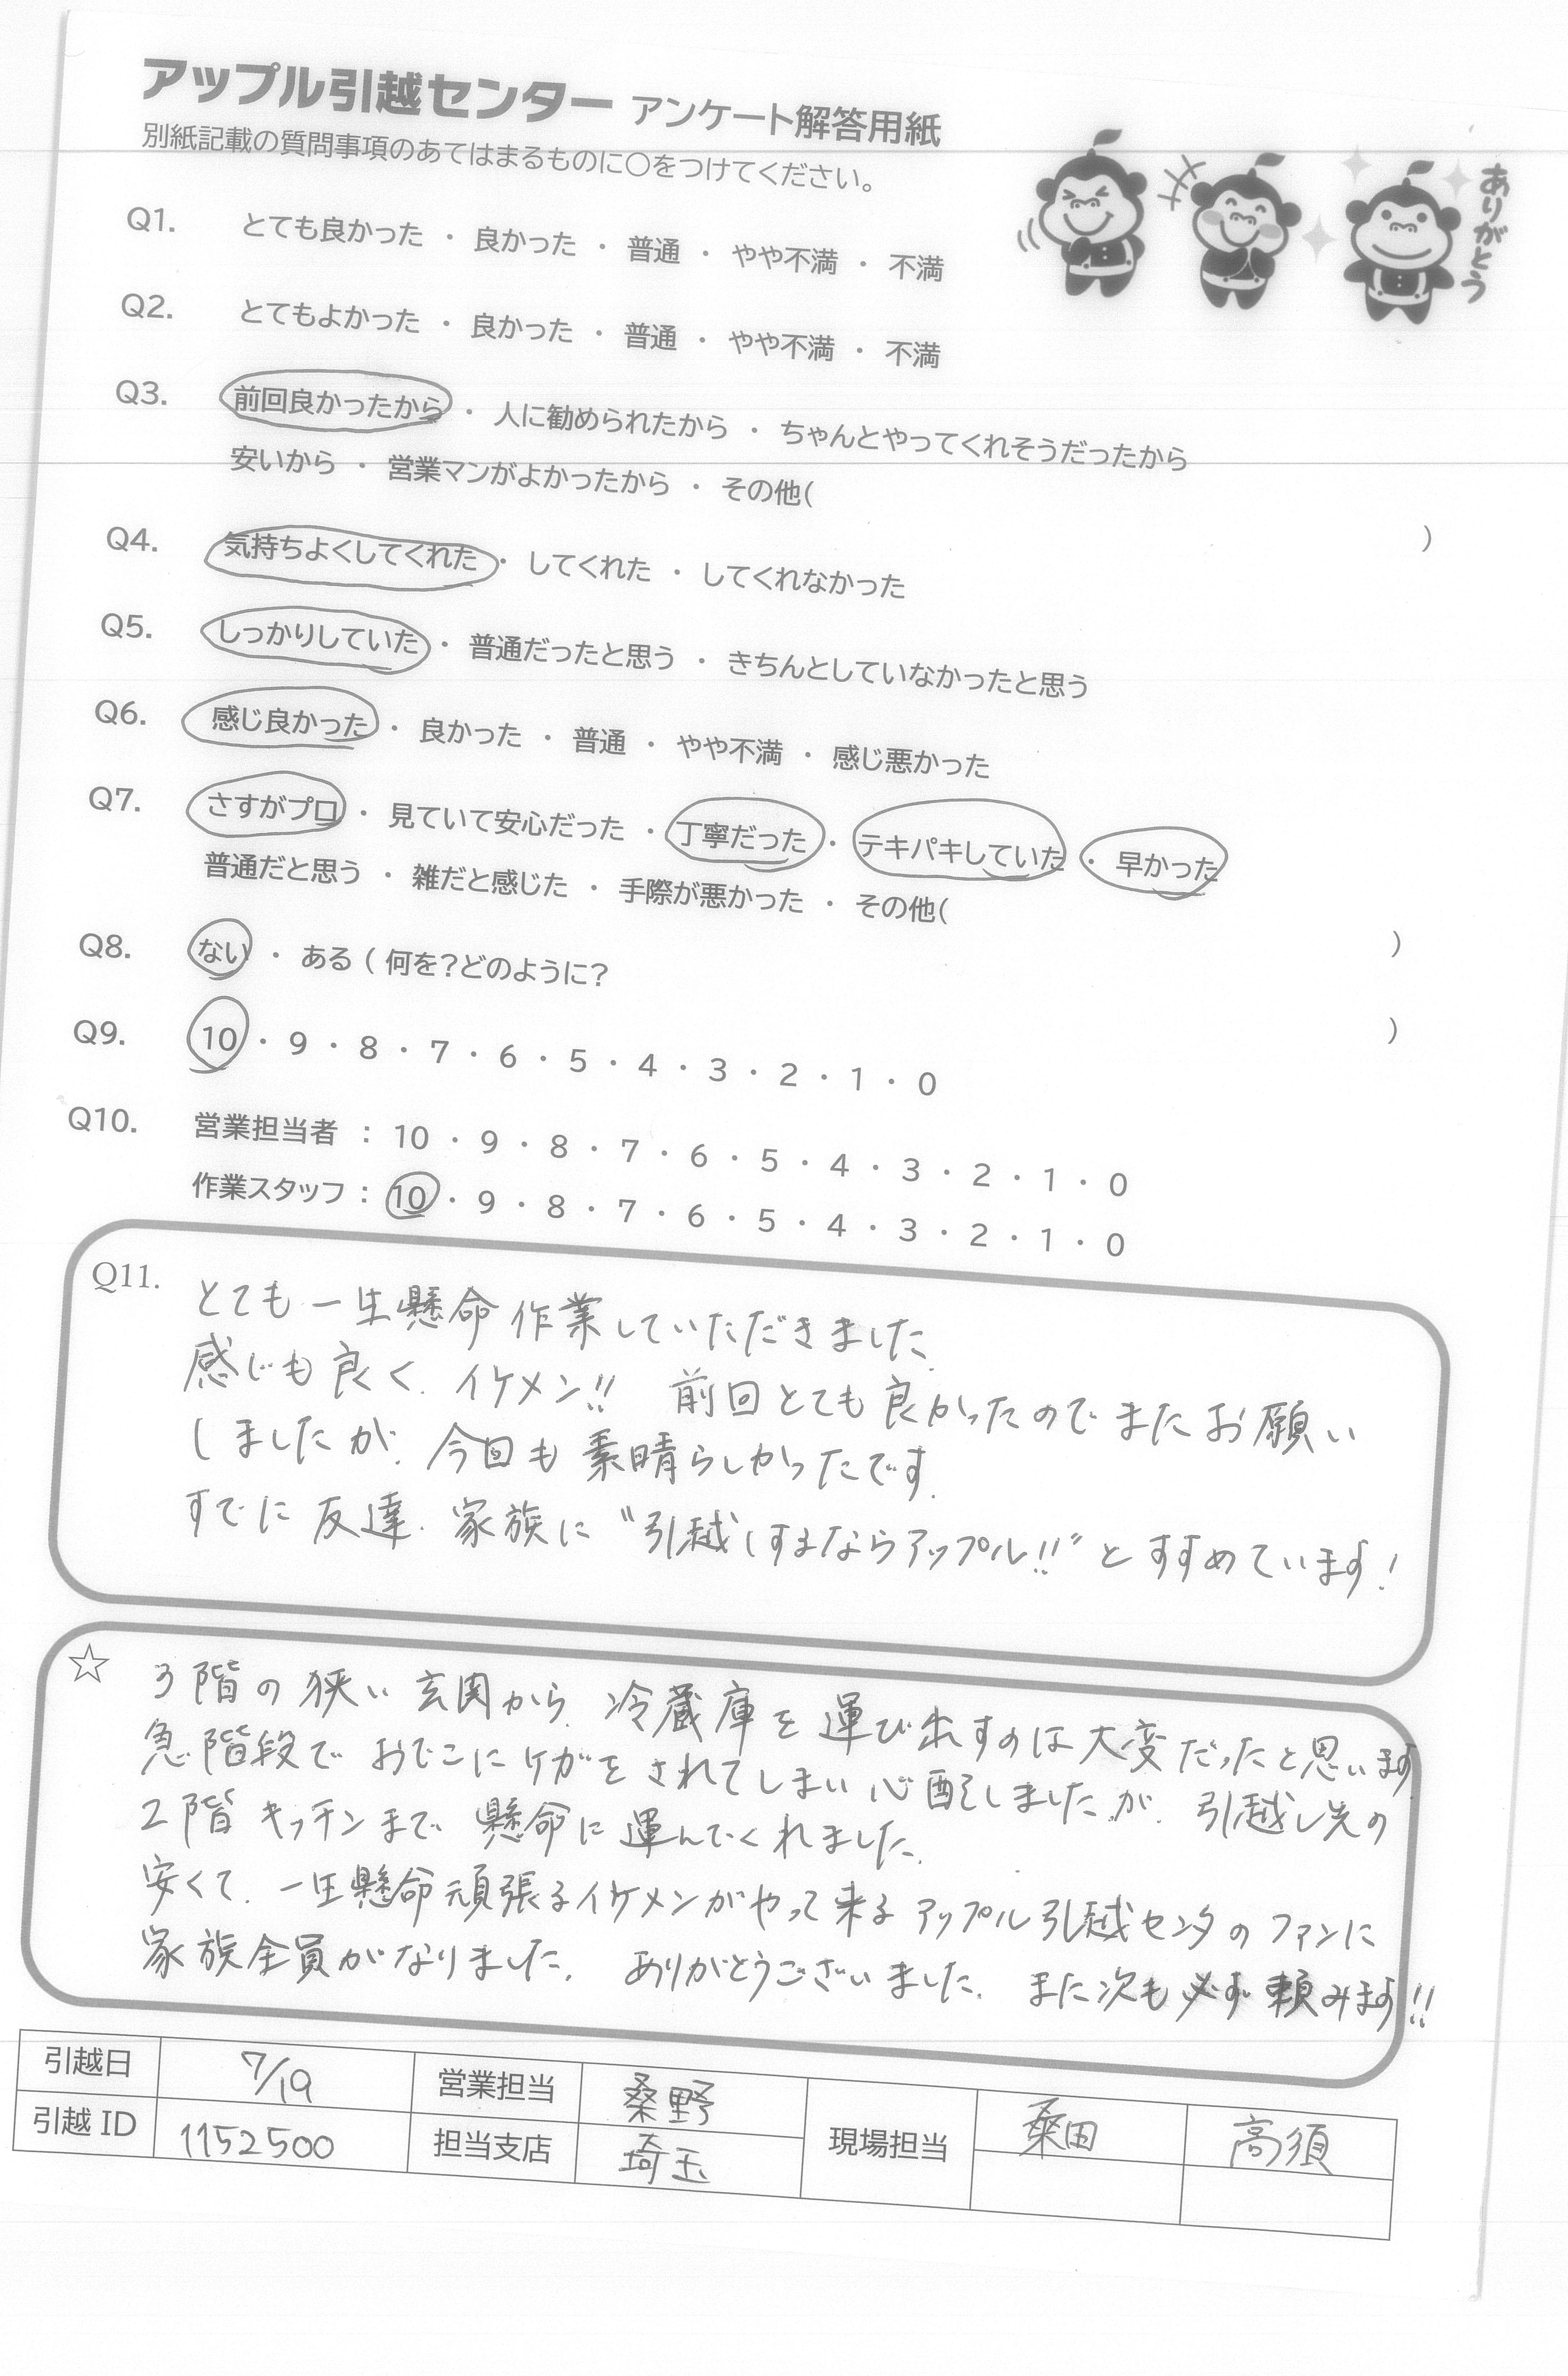 アップル引越センター アンケート解答用紙
別紙記載の質問事項のあてはまるものに〇をつけてください。
ありがとう
Q1. とても良かった ・ 良かった ・ 普通 ・ やや不満 ・ 不満
Q2. とてもよかった ・ 良かった ・ 普通 ・ やや不満 ・ 不満
Q3. 前回良かったから ・ 人に勧められたから ・ ちゃんとやってくれそうだったから
安いから ・ 営業マンがよかったから ・ その他( )
Q4. 気持ちよくしてくれた ・ してくれた ・ してくれなかった
Q5. しっかりしていた ・ 普通だったと思う ・ きちんとしていなかったと思う
Q6. 感じ良かった ・ 良かった ・ 普通 ・ やや不満 ・ 感じ悪かった
Q7. さすがプロ ・ 見ていて安心だった ・ 丁寧だった ・ テキパキしていた ・ 早かった
普通だと思う ・ 雑だと感じた ・ 手際が悪かった ・ その他( )
Q8. ない ・ ある ( 何を?どのように? )
Q9. 10 ・ 9 ・ 8 ・ 7 ・ 6 ・ 5 ・ 4 ・ 3 ・ 2 ・ 1 ・ 0
Q10. 営業担当者 : 10 ・ 9 ・ 8 ・ 7 ・ 6 ・ 5 ・ 4 ・ 3 ・ 2 ・ 1 ・ 0
作業スタッフ : 10 ・ 9 ・ 8 ・ 7 ・ 6 ・ 5 ・ 4 ・ 3 ・ 2 ・ 1 ・ 0
Q11. とても一生懸命作業していただきました.
感じも良く. イケメン!! 前回とても良かったのでまたお願い
しましたが. 今回も素晴らしかったです.
すでに友達. 家族に“引越しするならアップル!!”とすすめています!
☆ 3階の狭い玄関から. 冷蔵庫を運び出すのは大変だったと思います
急階段でおでこにケガをされてしまい心配しましたが. 引越し先の
2階キッチンまで懸命に運んでくれました.
安くて. 一生懸命頑張るイケメンがやって来るアップル引越センタのファンに
家族全員がなりました. ありがとうございました. また次も必ず頼みます!!
引越日 7/19 営業担当 桑野 現場担当 桑田 高須
引越 ID 1152500 担当支店 埼玉